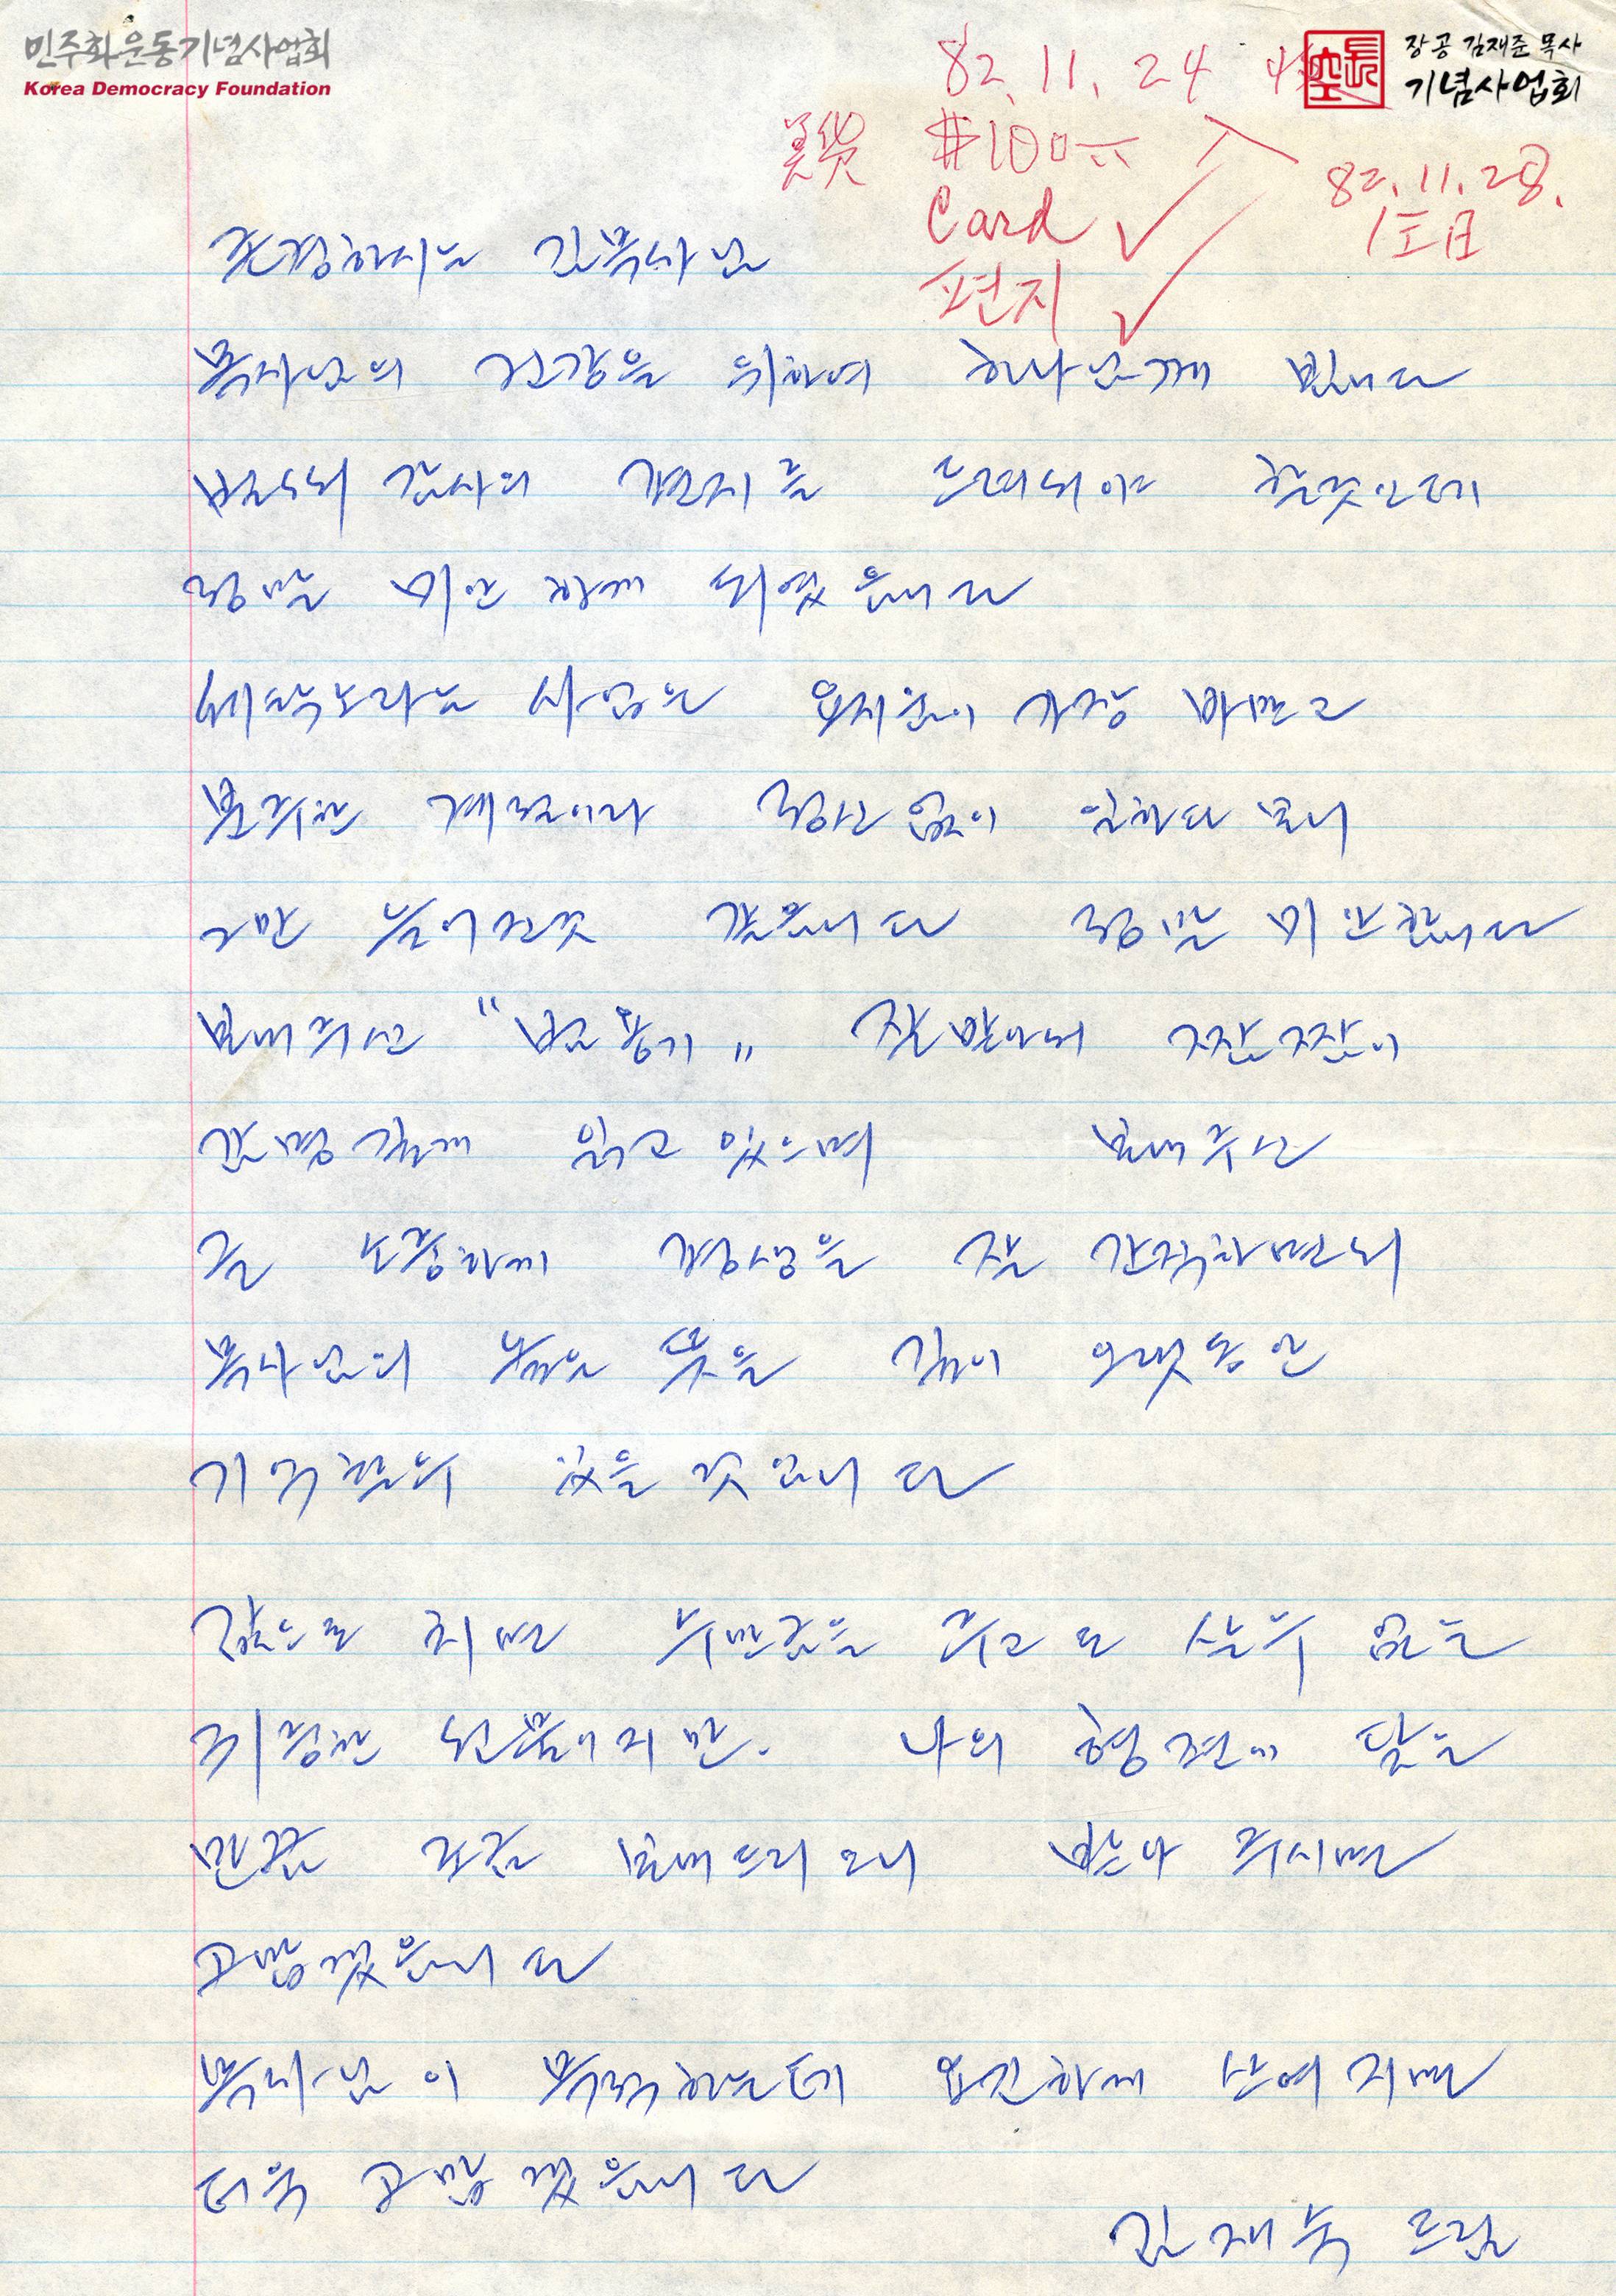 민주화운동기념사업회
Korea Democracy Foundation
장공 김재준 목사
기념사업회
82. 11. 24
美貨 #100
Card ✓
편지 ✓
82. 11. 28.
主日
존경하시는 김목사님
목사님의 건강을 위하여 하나님께 빕니다
벌서 감사의 편지를 드려서야 할것인데
정말 미안하게 되엿읍니다
세탁소라는 사업은 요지음이 가장 바쁘고
분주한 계절이라 정신없이 일하다 보니
그만 늦어진것 같읍니다 정말 미안합니다
보내주신 "범용기" 잘 받아서 짬짬이
감명깊게 읽고 있으며 보내주신
글 소중하게 평생을 잘 간직하면서
목사님의 높은 뜻을 깊이 오랫동안
기억할수 있을것입니다
값으로 치면 수만금을 주고도 살수 없는
귀중한 선물이지만. 나의 형편에 닿는
만큼 조금 보내드리오니 받아 주시면
고맙겠읍니다
목사님이 목적하는데 요긴하게 쓰여지면
더욱 고맙겠읍니다
김재숙 드림